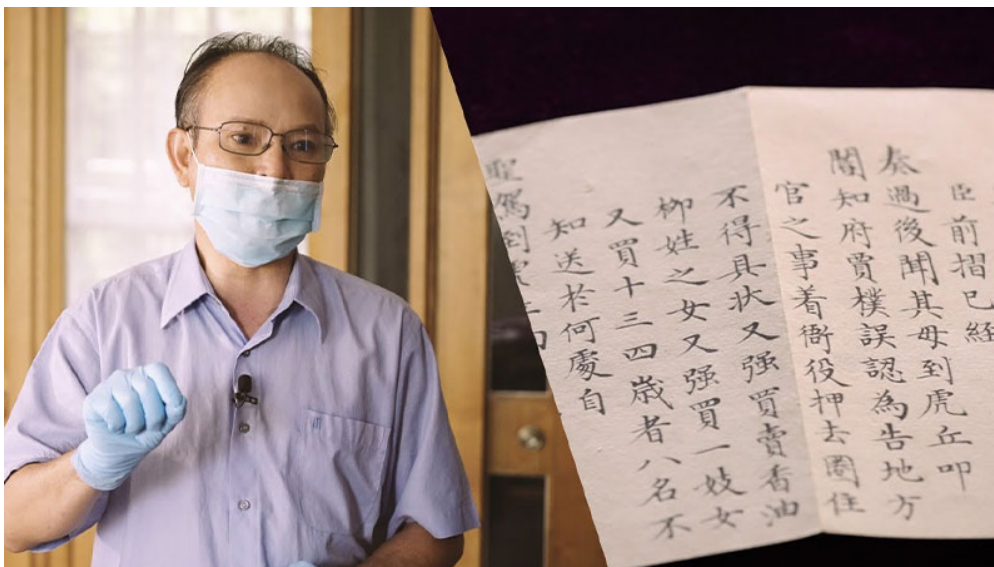 臣前摺已經
奏過後聞其母到虎丘叩
閽知府賈樸誤認為告地方
官之事着衙役押去圈住
不得具狀又强買賣香油
柳姓之女又强買一妓女
又買十三四歲者八名不
知送於何處自
聖駕到